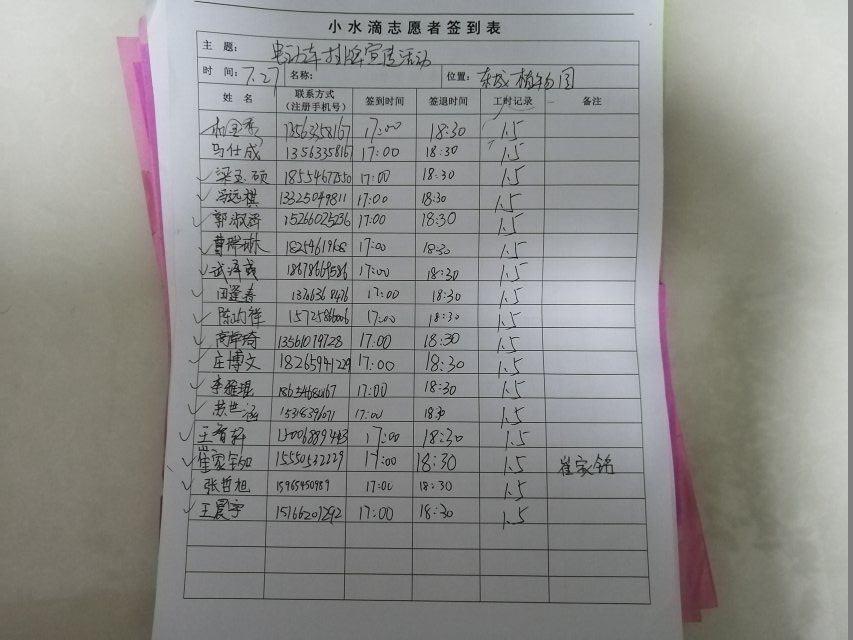 小水滴志愿者签到表
主 题： 电动车挂牌宣传活动
时 间： 7.27 名称： 位置： 东城植物园
姓 名 联系方式（注册手机号） 签到时间 签退时间 工时记录 备注
13563358167 17:00 18:30 1.5
马仕成 13563358167 17:00 18:30 1.5
梁玉硕 18554677550 17:00 18:30 1.5
冯远祺 13325049811 17:00 18:30 1.5
郭淑涵 15266025236 17:00 18:30 1.5
曹瑞琳 17:00 18:30 1.5
武泽寅 18678669586 17:00 18:30 1.5
田蓬春 17:00 18:30 1.5
陈灼锋 17:00 18:30 1.5
13561019728 17:00 18:30 1.5
庄博文 18265941229 17:00 18:30 1.5
李雅琨 17:00 18:30 1.5
苏世涵 17:00 18:30 1.5
王晋轩 17:00 18:30 1.5
崔家铭 15550532229 17:00 18:30 1.5 崔家铭
张哲旭 15965450989 17:00 18:30 1.5
王震宇 15166201292 17:00 18:30 1.5